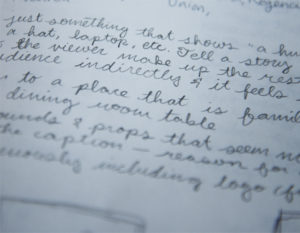 Union,
just something that shows "a hu
a hat, laptop, etc. Tell a story
the viewer make up the res
udience indirectly & it feels
to a place that is famil
dining room table
ounds & props that seem no
the caption — reason for
including logo (f